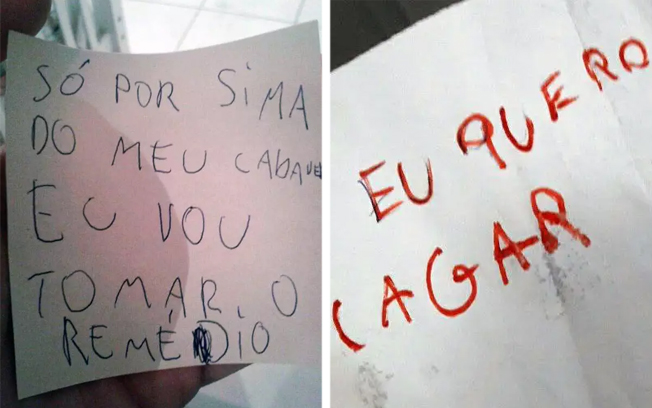 SÓ POR SIMA
DO MEU CADAVER
EU VOU
TOMAR. O
REMÉDIO
EU QUERO
CAGAR